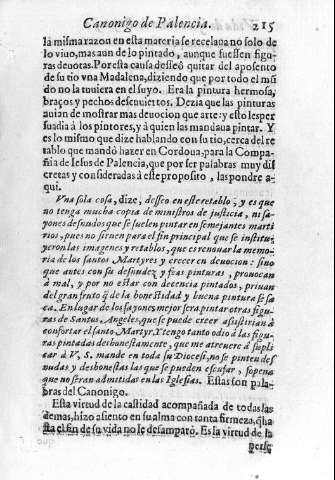 Canonigo de Palencia. 215
la misma razon en esta materia se recelaua no solo de
lo viuo, mas aun de lo pintado, aunque fuessen figu-
ras deuotas. Por esta causa desseò quitar del aposento
de su tio vna Madalena, diziendo que por todo el mũ
do no la tuuiera en el suyo. Era la pintura hermosa,
braços y pechos descuiertos. Dezia que las pinturas
auian de mostrar mas deuocion que arte: y esto les per
suadia à los pintores, y à quien las mandaua pintar. Y
es lo mismo que dize hablando con su tio, cerca del re
tablo que mandò hazer en Cordoua, para la Compa-
ñia de Iesus de Palencia, que por ser palabras muy dis
cretas y consideradas à este proposito, las pondre a-
qui.
Vna sola cosa, dize, desseo en este retablo, y es que
no tenga mucha copia de ministros de justicia, ni sa-
yones desnudos que se suelen pintar en semejantes marti
rios, pues no siruen para el fin principal que se institu-
yeron las imagenes y retablos, que es renouar la memo-
ria de los santos Martyres y crecer en deuocion: sino
que antes con su desnudez y feas pinturas, prouocan
à mal, y por no estar con decencia pintados, priuan
del gran fruto q̃ de la honestidad y buena pintura se sa
ca. En lugar de los sayones mejor sera pintar otras figu-
ras de Santos Angeles, que se puede creer assistirian à
confortar el santo Martyr. Y tengo tanto odio à las figu-
ras pintadas deshonestamente, que me atreuere à supli
car à V. S. mande en toda su Diocesi, no se pinten des
nudas y deshonestas las que se pueden escusar, so pena
que no seran admitidas en las Iglesias. Estas son pala-
bras del Canonigo.
Esta virtud de la castidad acompañada de todas las
demas, hizo assiento en su alma con tanta firmeza, q̃ ha
sta el fin de su vida no le desamparò. Es la virtud de la
perse